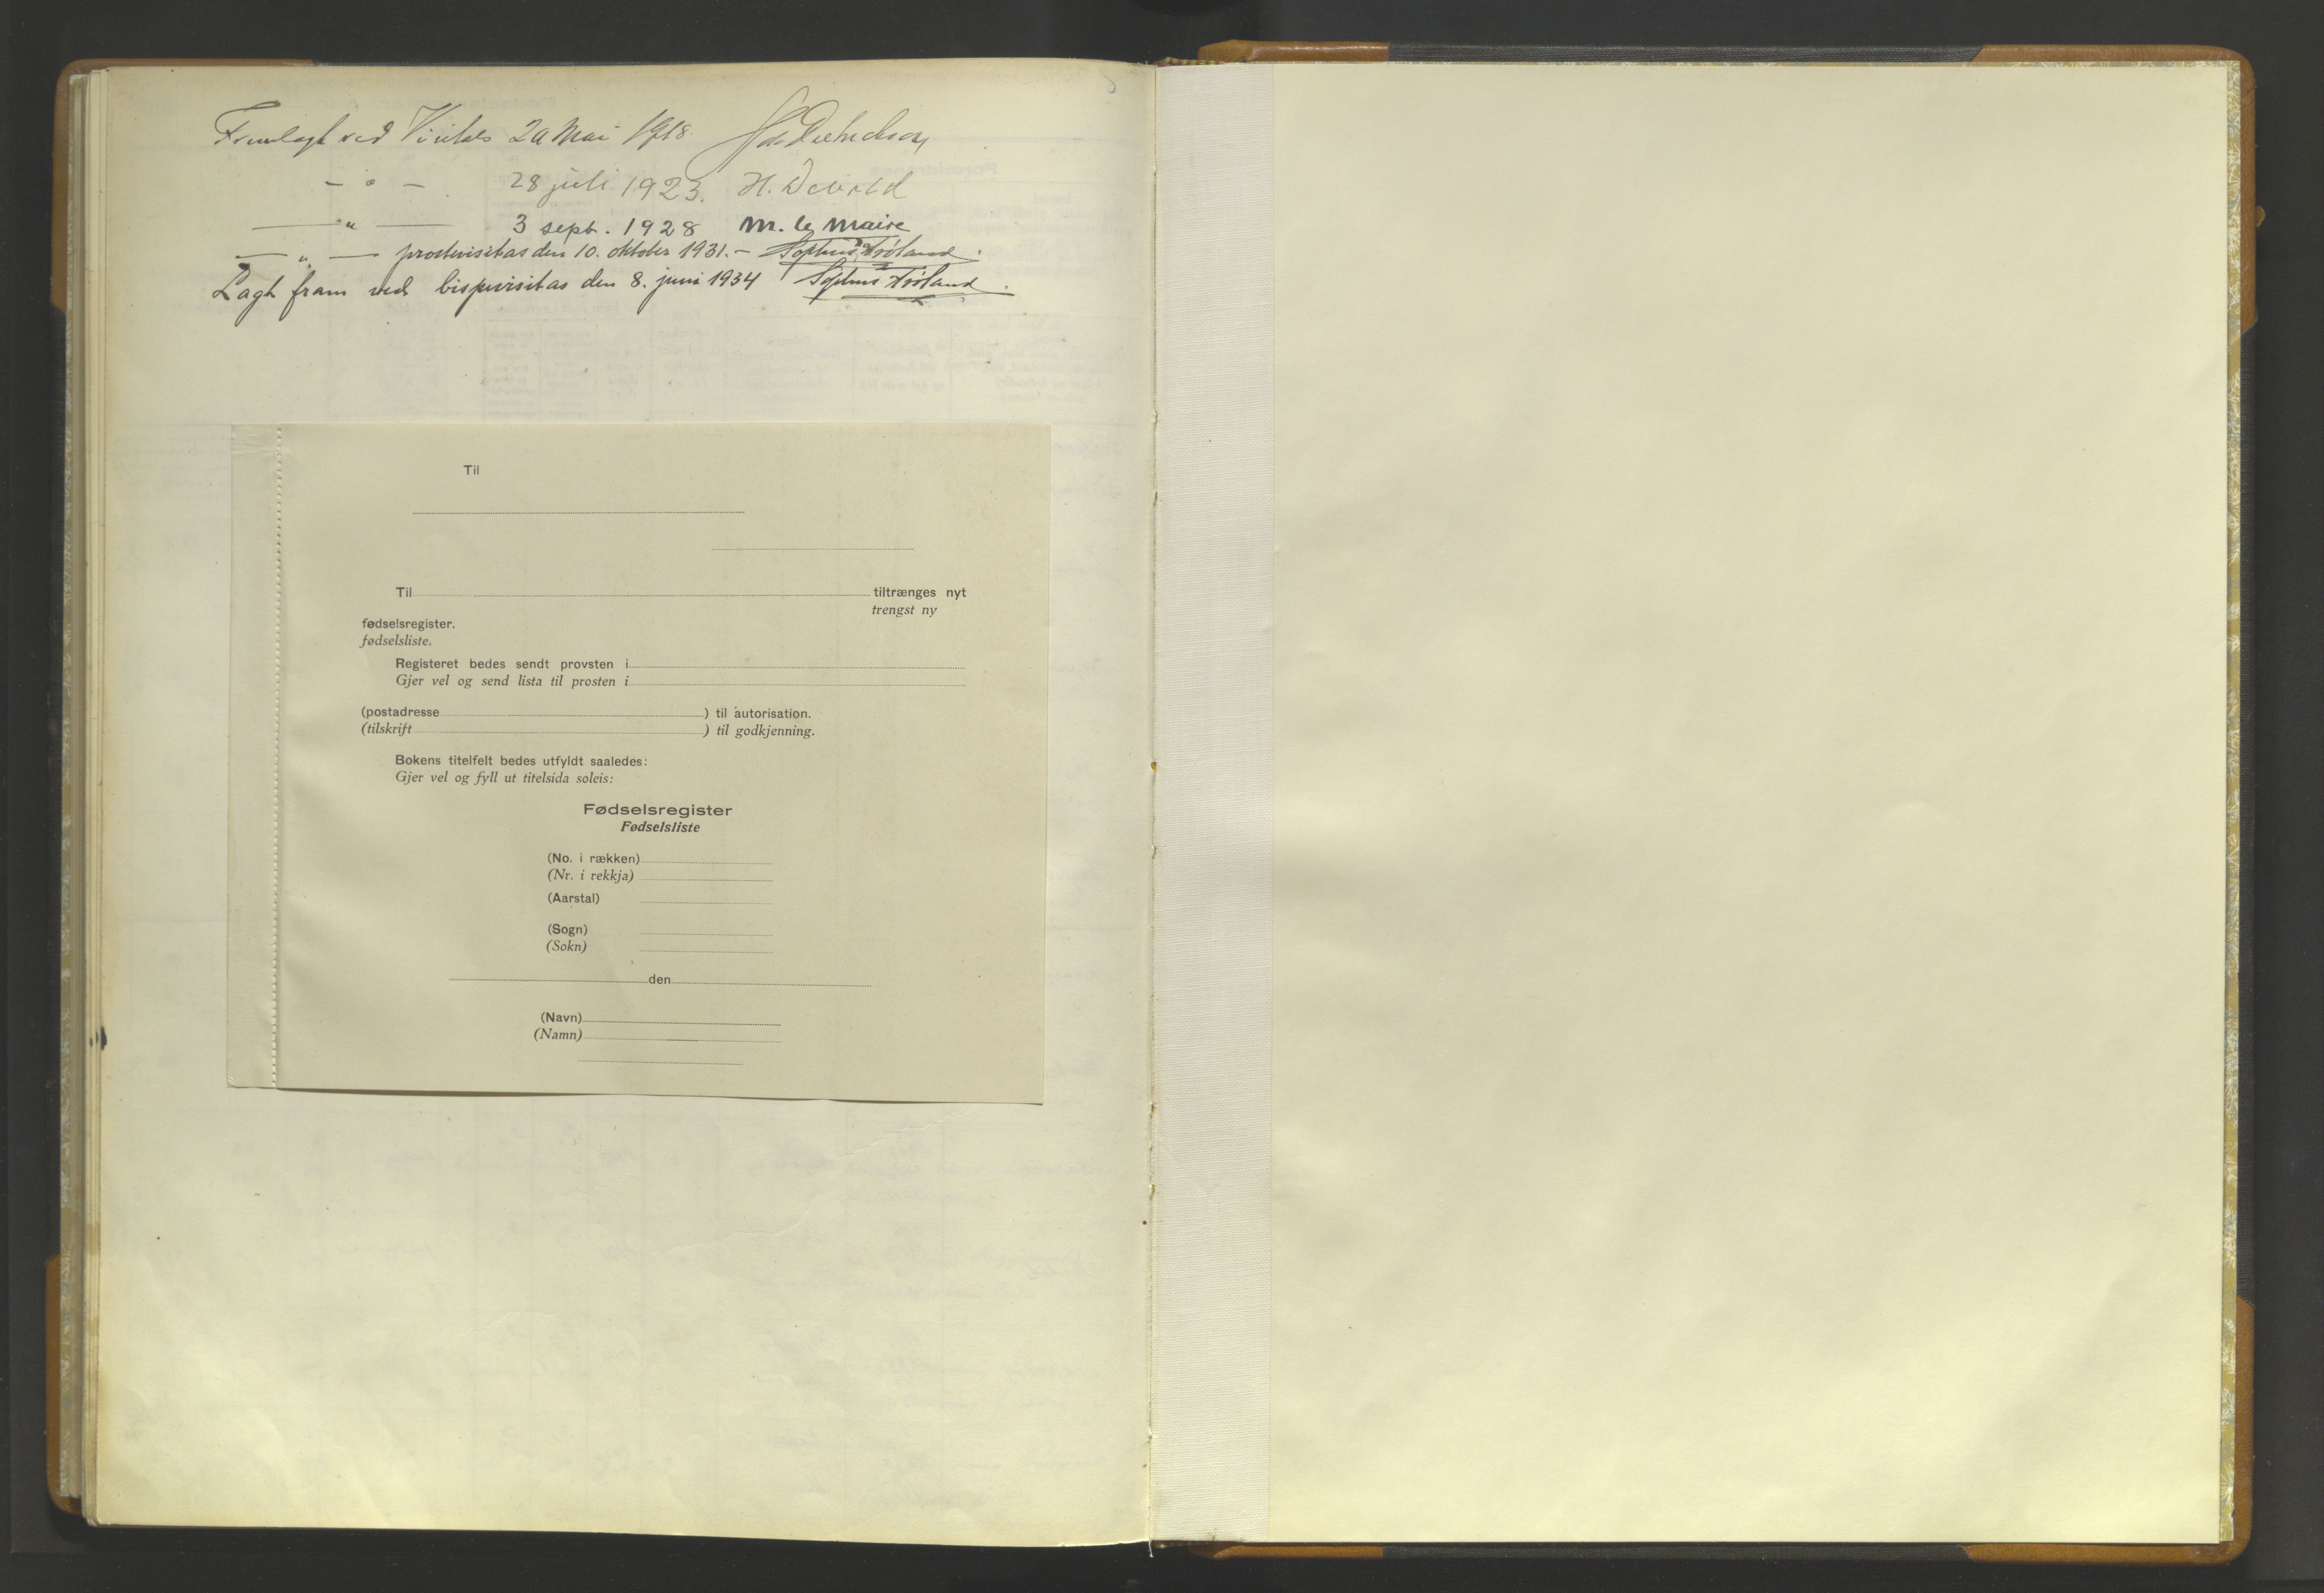 Fremlagt ved Visitas 20 Mai 1918.
— " — 28 juli 1923. H. Devold
— " — 3 sept. 1928 M. le Maire
— " — prostevisitas den 10. oktober 1931. – Sophus Trøland.
Lagt fram ved bispevisitas den 8. juni 1934 Sophus Trøland.
Til
Til tiltrænges nyt
trengst ny
fødselsregister.
fødselsliste.
Registeret bedes sendt provsten i
Gjer vel og send lista til prosten i
(postadresse ) til autorisation.
(tilskrift ) til godkjenning.
Bokens titelfelt bedes utfyldt saaledes:
Gjer vel og fyll ut titelsida soleis:
Fødselsregister
Fødselsliste
(No. i rækken)
(Nr. i rekkja)
(Aarstal)
(Sogn)
(Sokn)
den
(Navn)
(Namn)